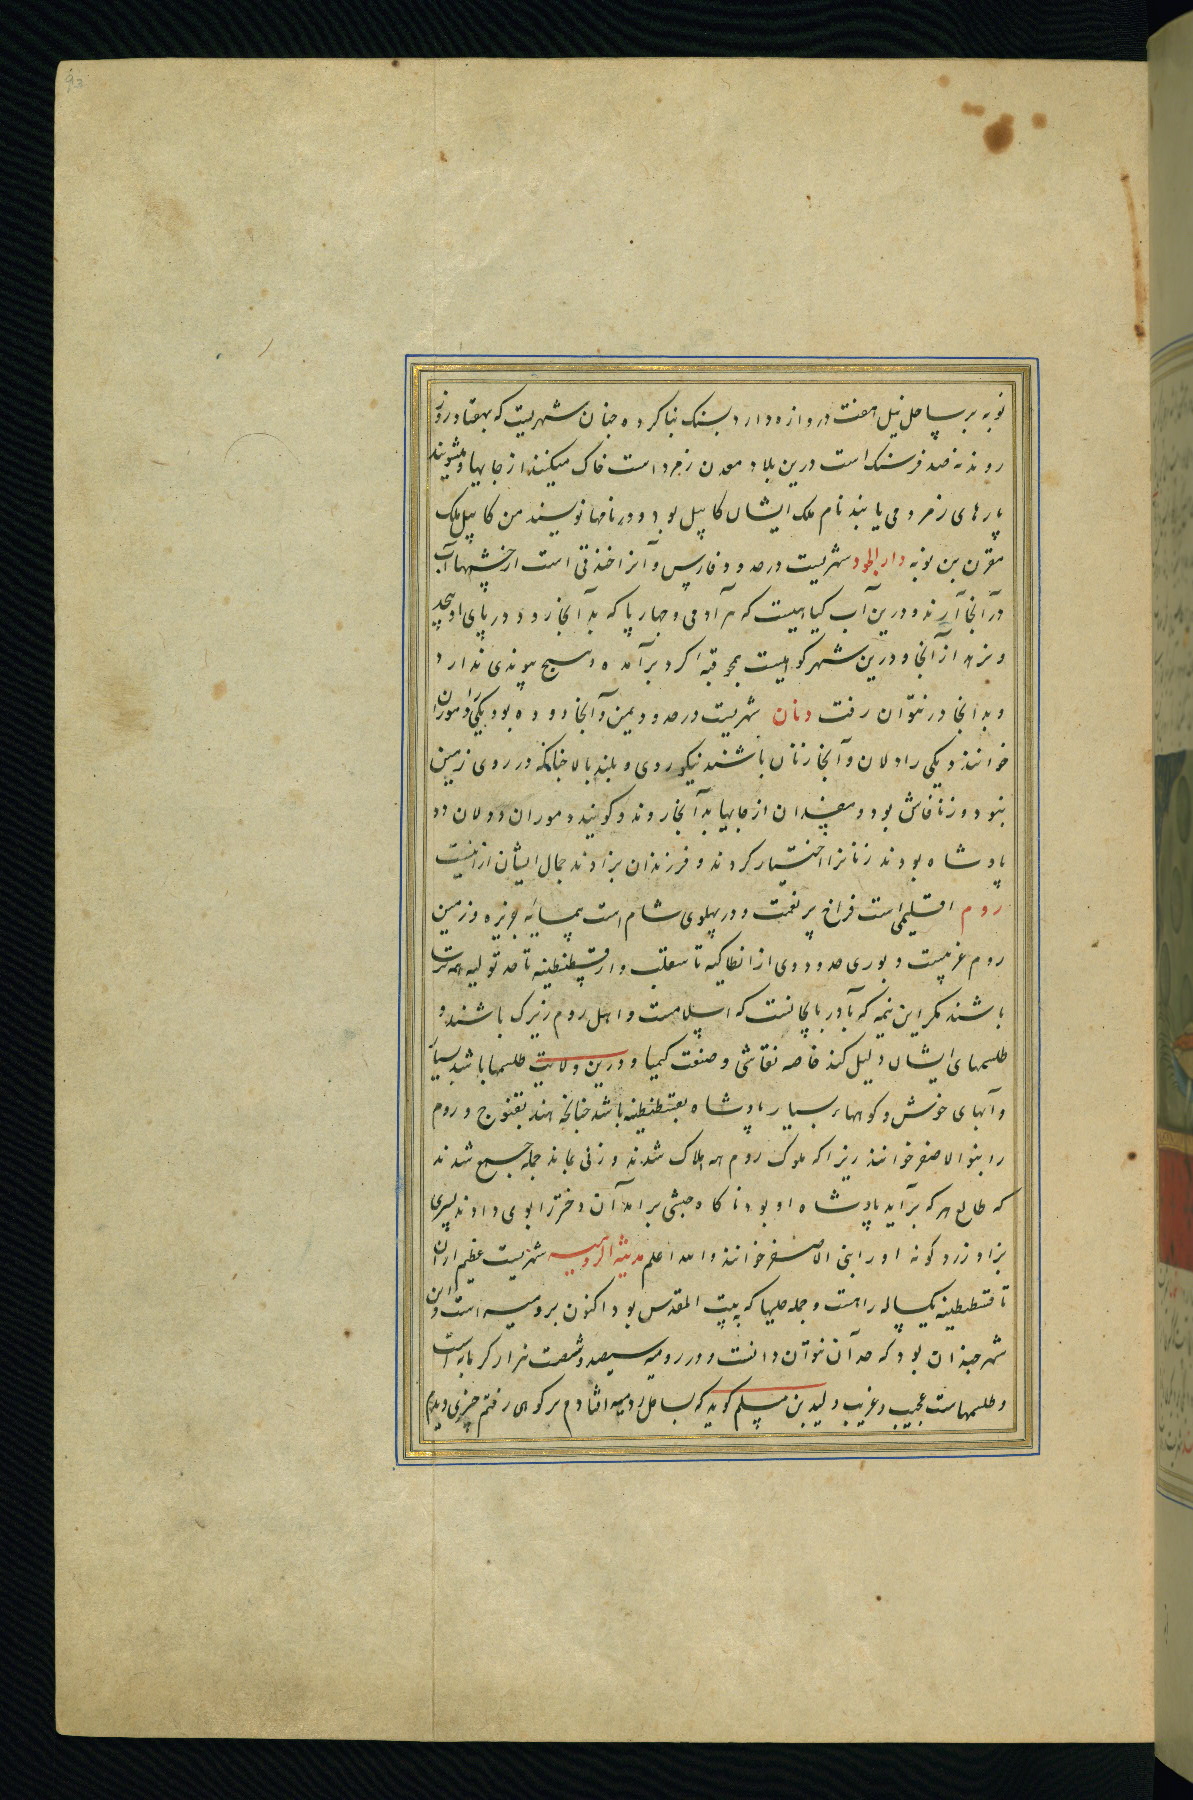 نوبه بر ساحل نیل هفت دروازه دارد بسنک بنا کرده جنان شهریست که بهفتاد روز
روند نه صد فرسنک است درین بلاد معدن زمرد است خاک میکنند از جایها و میشویند
پارهای زمرد می یابند نام ملک ایشان کابیل بود و در نامها نویسند من کابیل ملک
مقرن بن نوبه دارابجرد شهریست در حدود فارس و آنرا خندقی است از چشمها آب
در آنجا آرند و درین آب کیاهیست که هر آدمی و جهارپا که بدآنجا رود در پای او پیچد
و نرهد از آنجا و درین شهر کوهیست همجو قبه کرد برآمده و هیچ پیوندی ندارد
و بدانجا در نتوان رفت دنان شهریست در حدود یمن و آنجا دو ده بود یکی را دموران
خوانند و یکی را دلان و آنجا زنان باشند نیکو روی و بلند بالا جنانکه در روی زمین
نبود و زنا فاش بود و مفسدان از جایها بدآنجا روند و کویند دموران و دلان دو
پادشاه بودند زنانرا اختیار کردند و فرزندان بزادند جمال ایشان از اینست
روم اقلیمی است فراخ پر نعمت و در پهلوی شام است همسایه جزیره و زمین
روم غربیست و بوری حدود وی از انطاکیه تا سقلب و از قسطنطنیه تا حد تولیه همه ترسا
باشند مکر این نیمه که بآذربایجانست که اسلامست و اهل روم زیرک باشند و
طلسمهای ایشان دلیل کند خاصه نقاشی و صنعت کیمیا و درین ولایت طلسمها باشد بسیار
و آبهای خوش و کوهها بسیار پادشاه بقسطنطنیه باشد جنانجه هند بقنوج و روم
را بنو الاصفر خوانند زیرا که ملوک روم همه هلاک شدند و زنی بماند جمله جمع شدند
که طالع هر که برآید پادشاه او بود ناکاه حبشی برآمد آن دختر را بوی دادند پسری
بزاد زرد کونه او را بنی الاصفر خوانند والله اعلم مدینة الرومیه شهریست عظیم از آن
تا قسطنطنیه یکساله راهست و جمله حلیها که به بیت المقدس بود اکنون برومیه است و این
شهر جندان بود که حد آن نتوان دانست و در رومیه سیصد و شصت هزار کرمابه است
و طلسمهاست عجیب و غریب ولید بن مسلم کوید که بساحل رومیه افتادم بر کوهی رفتم جیزی دیدم